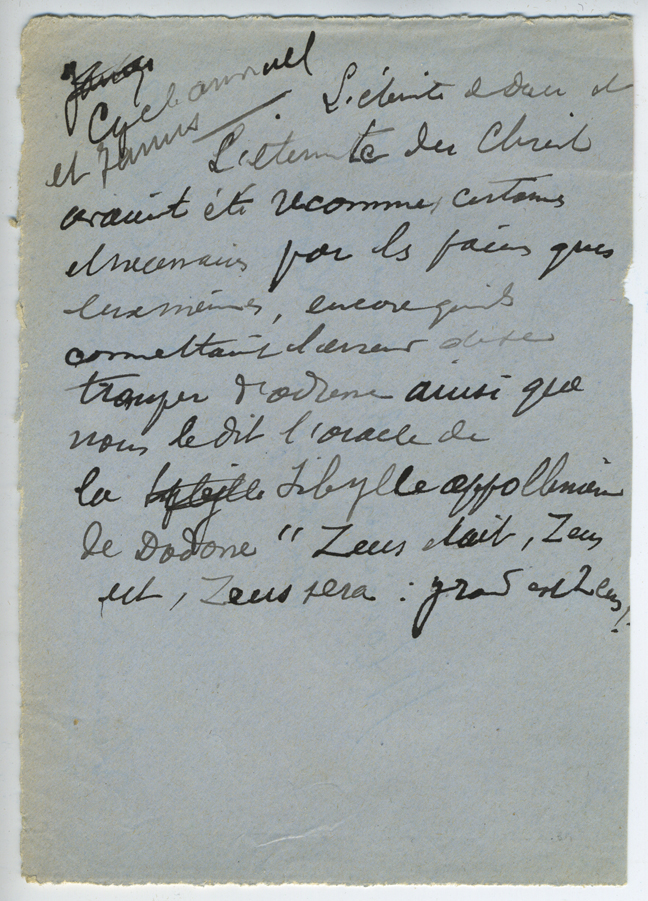 Cycle annuel
et Janus
L'éternité de Dieu et
L'éternité du Christ
avaient été reconnues certaines
et necessaires par les païens ques
eux mêmes, encore qu'ils
commettaient l'erreur de se
tromper d'adresse ainsi que
nous le dit l'oracle de
la Sibylle appollinienne
de Dodone " Zeus était, Zeus
est, Zeus sera : grand est Zeus !